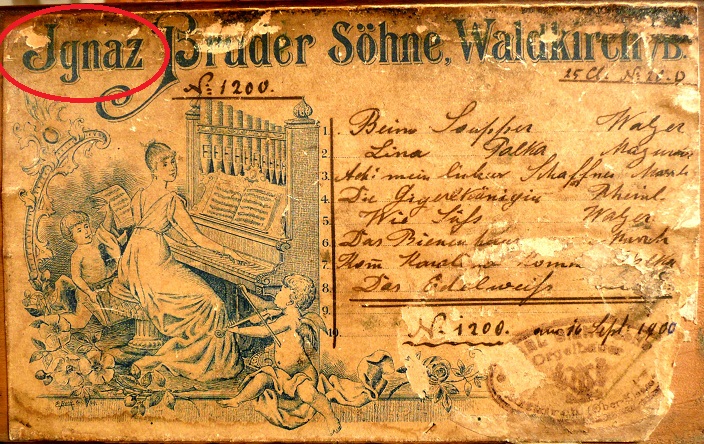 Ignaz Bruder Söhne, Waldkirch i/B.
No. 1200.
1. Beim Soupper Walzer
2. Lina Polka Mazurka
3. Ach mein lieber Schaffner Marsch
4. Die Geigerkönigin Rheinl.
5. Wie Süss Walzer
6. Das Bienenhaus Marsch
7. Komm Karolina komm Polka
8. Das Edelweiß
9.
10. No. 1200. am 16 Sept. 1900
Orgelbauer